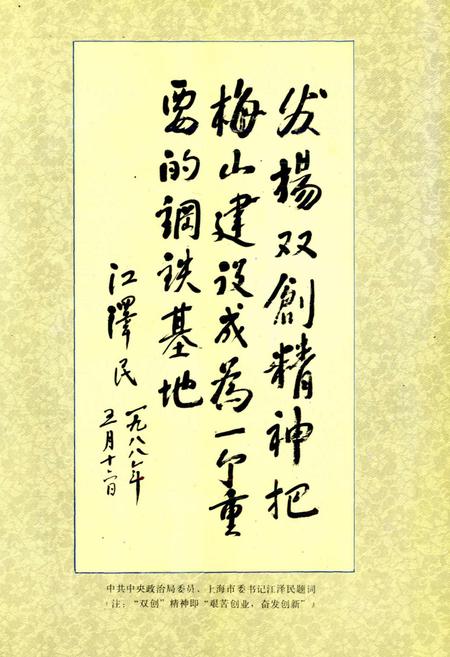 发揚双創精神把
梅山建设成為一个重
要的鋼鉄基地
江澤民
一九八八年
五月十二日
中共中央政治局委员、上海市委书记江泽民题词
（注：“双创”精神即“艰苦创业，奋发创新”）